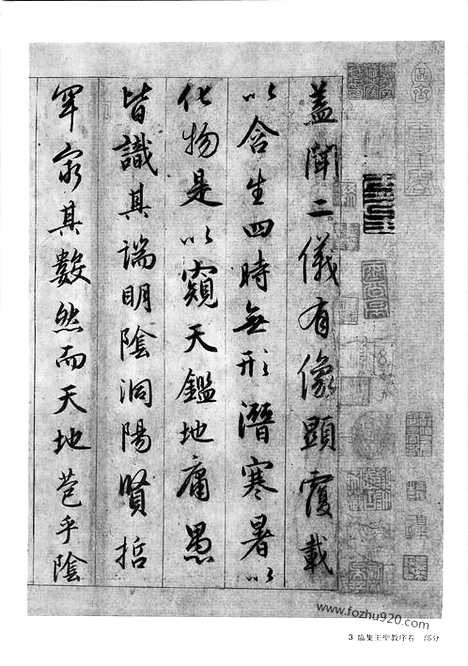 盖闻二儀有像顯覆載
以含生四時無形潛寒暑以
化物是以窺天鑑地庸愚
皆識其端明陰洞陽賢哲
罕窮其數然而天地苞乎陰
www.fozhu920.com
3 臨集王聖教序卷 部分